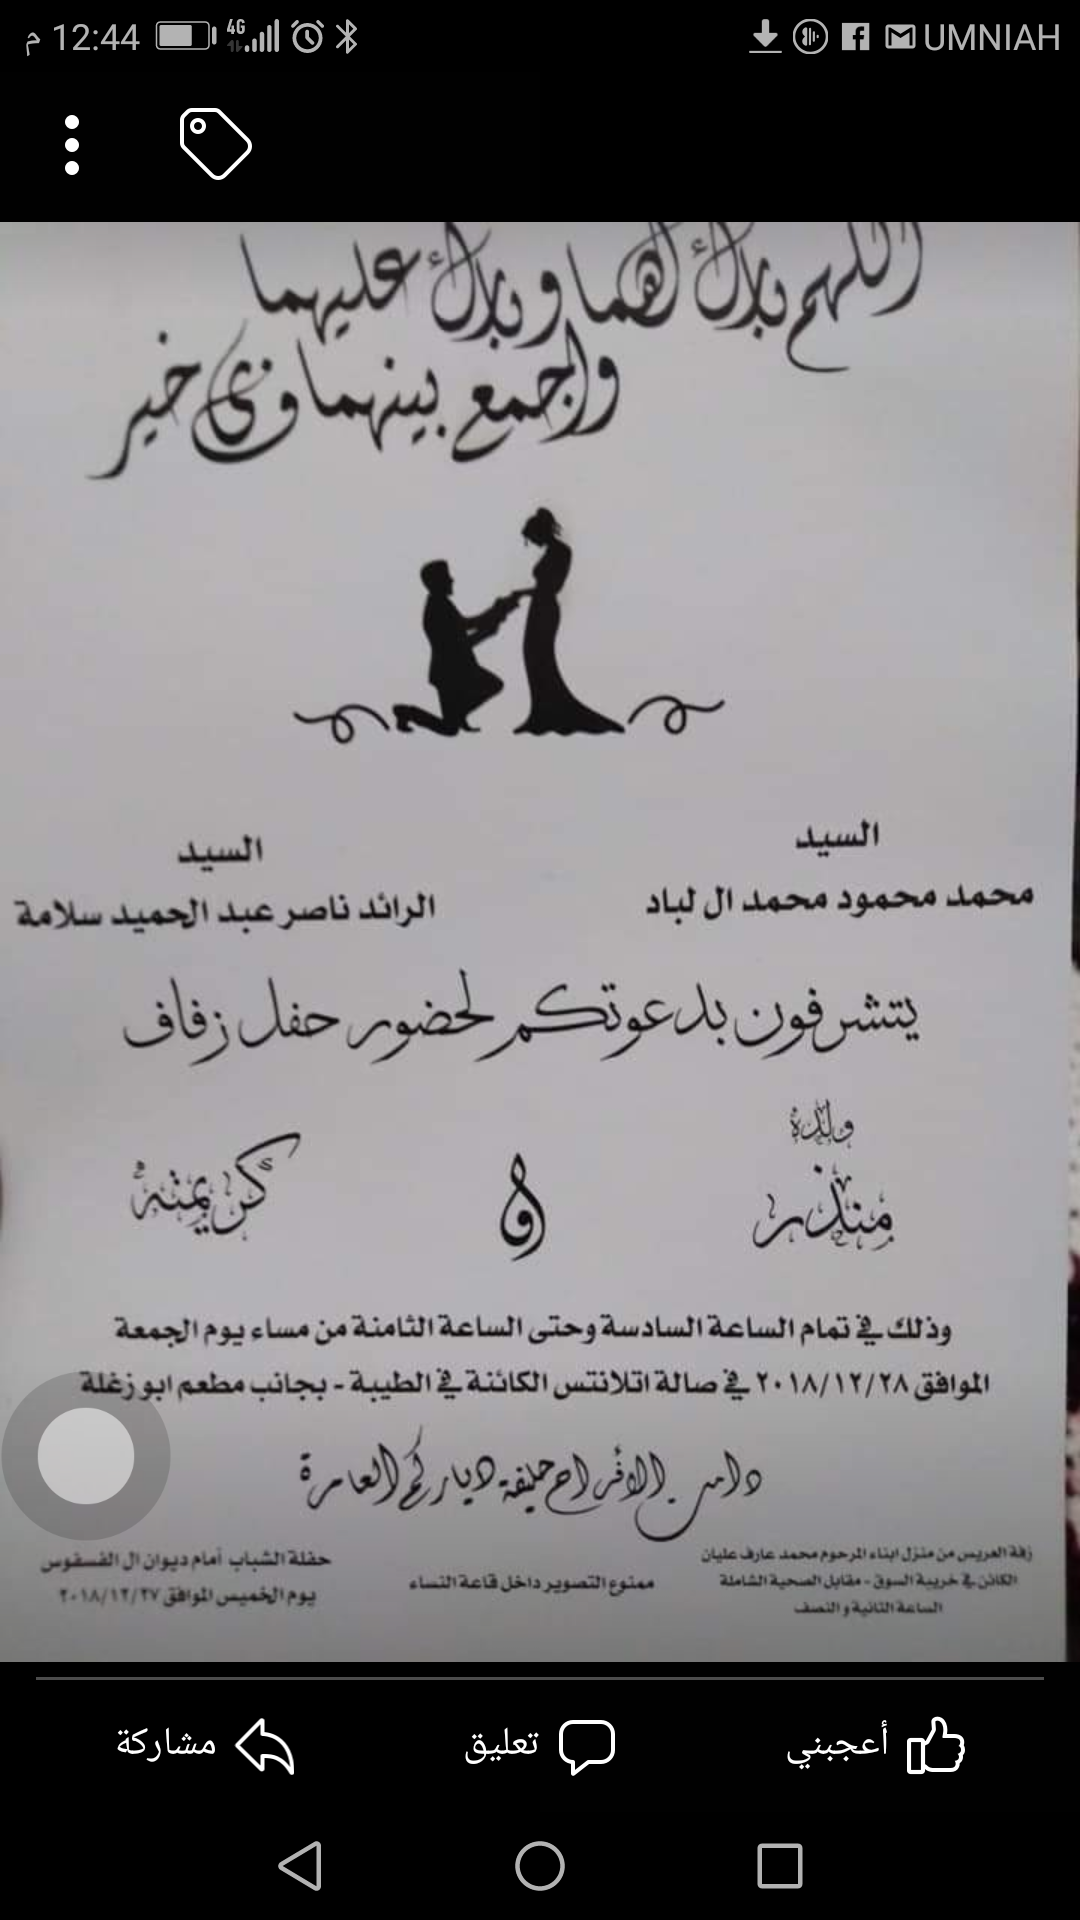 م 12:44 4G UMNIAH
اللهم بارك لهما وبارك عليهما
واجمع بينهما في خير
السيد
محمد محمود محمد ال لباد
السيد
الرائد ناصر عبد الحميد سلامة
يتشرفون بدعوتكم لحضور حفل زفاف
ولده
منذر
و
كريمته
وذلك في تمام الساعة السادسة وحتى الساعة الثامنة من مساء يوم الجمعة
الموافق ٢٠١٨/١٢/٢٨ في صالة اتلانتس الكائنة في الطيبة - بجانب مطعم ابو زغلة
دامت الافراح حليفة دياركم العامرة
زفة العريس من منزل ابناء المرحوم محمد عارف عليان
الكائن في خريبة السوق - مقابل الصحية الشاملة
الساعة الثانية و النصف
ممنوع التصوير داخل قاعة النساء
حفلة الشباب أمام ديوان ال الفسفوس
يوم الخميس الموافق ٢٠١٨/١٢/٢٧
أعجبني
تعليق
مشاركة